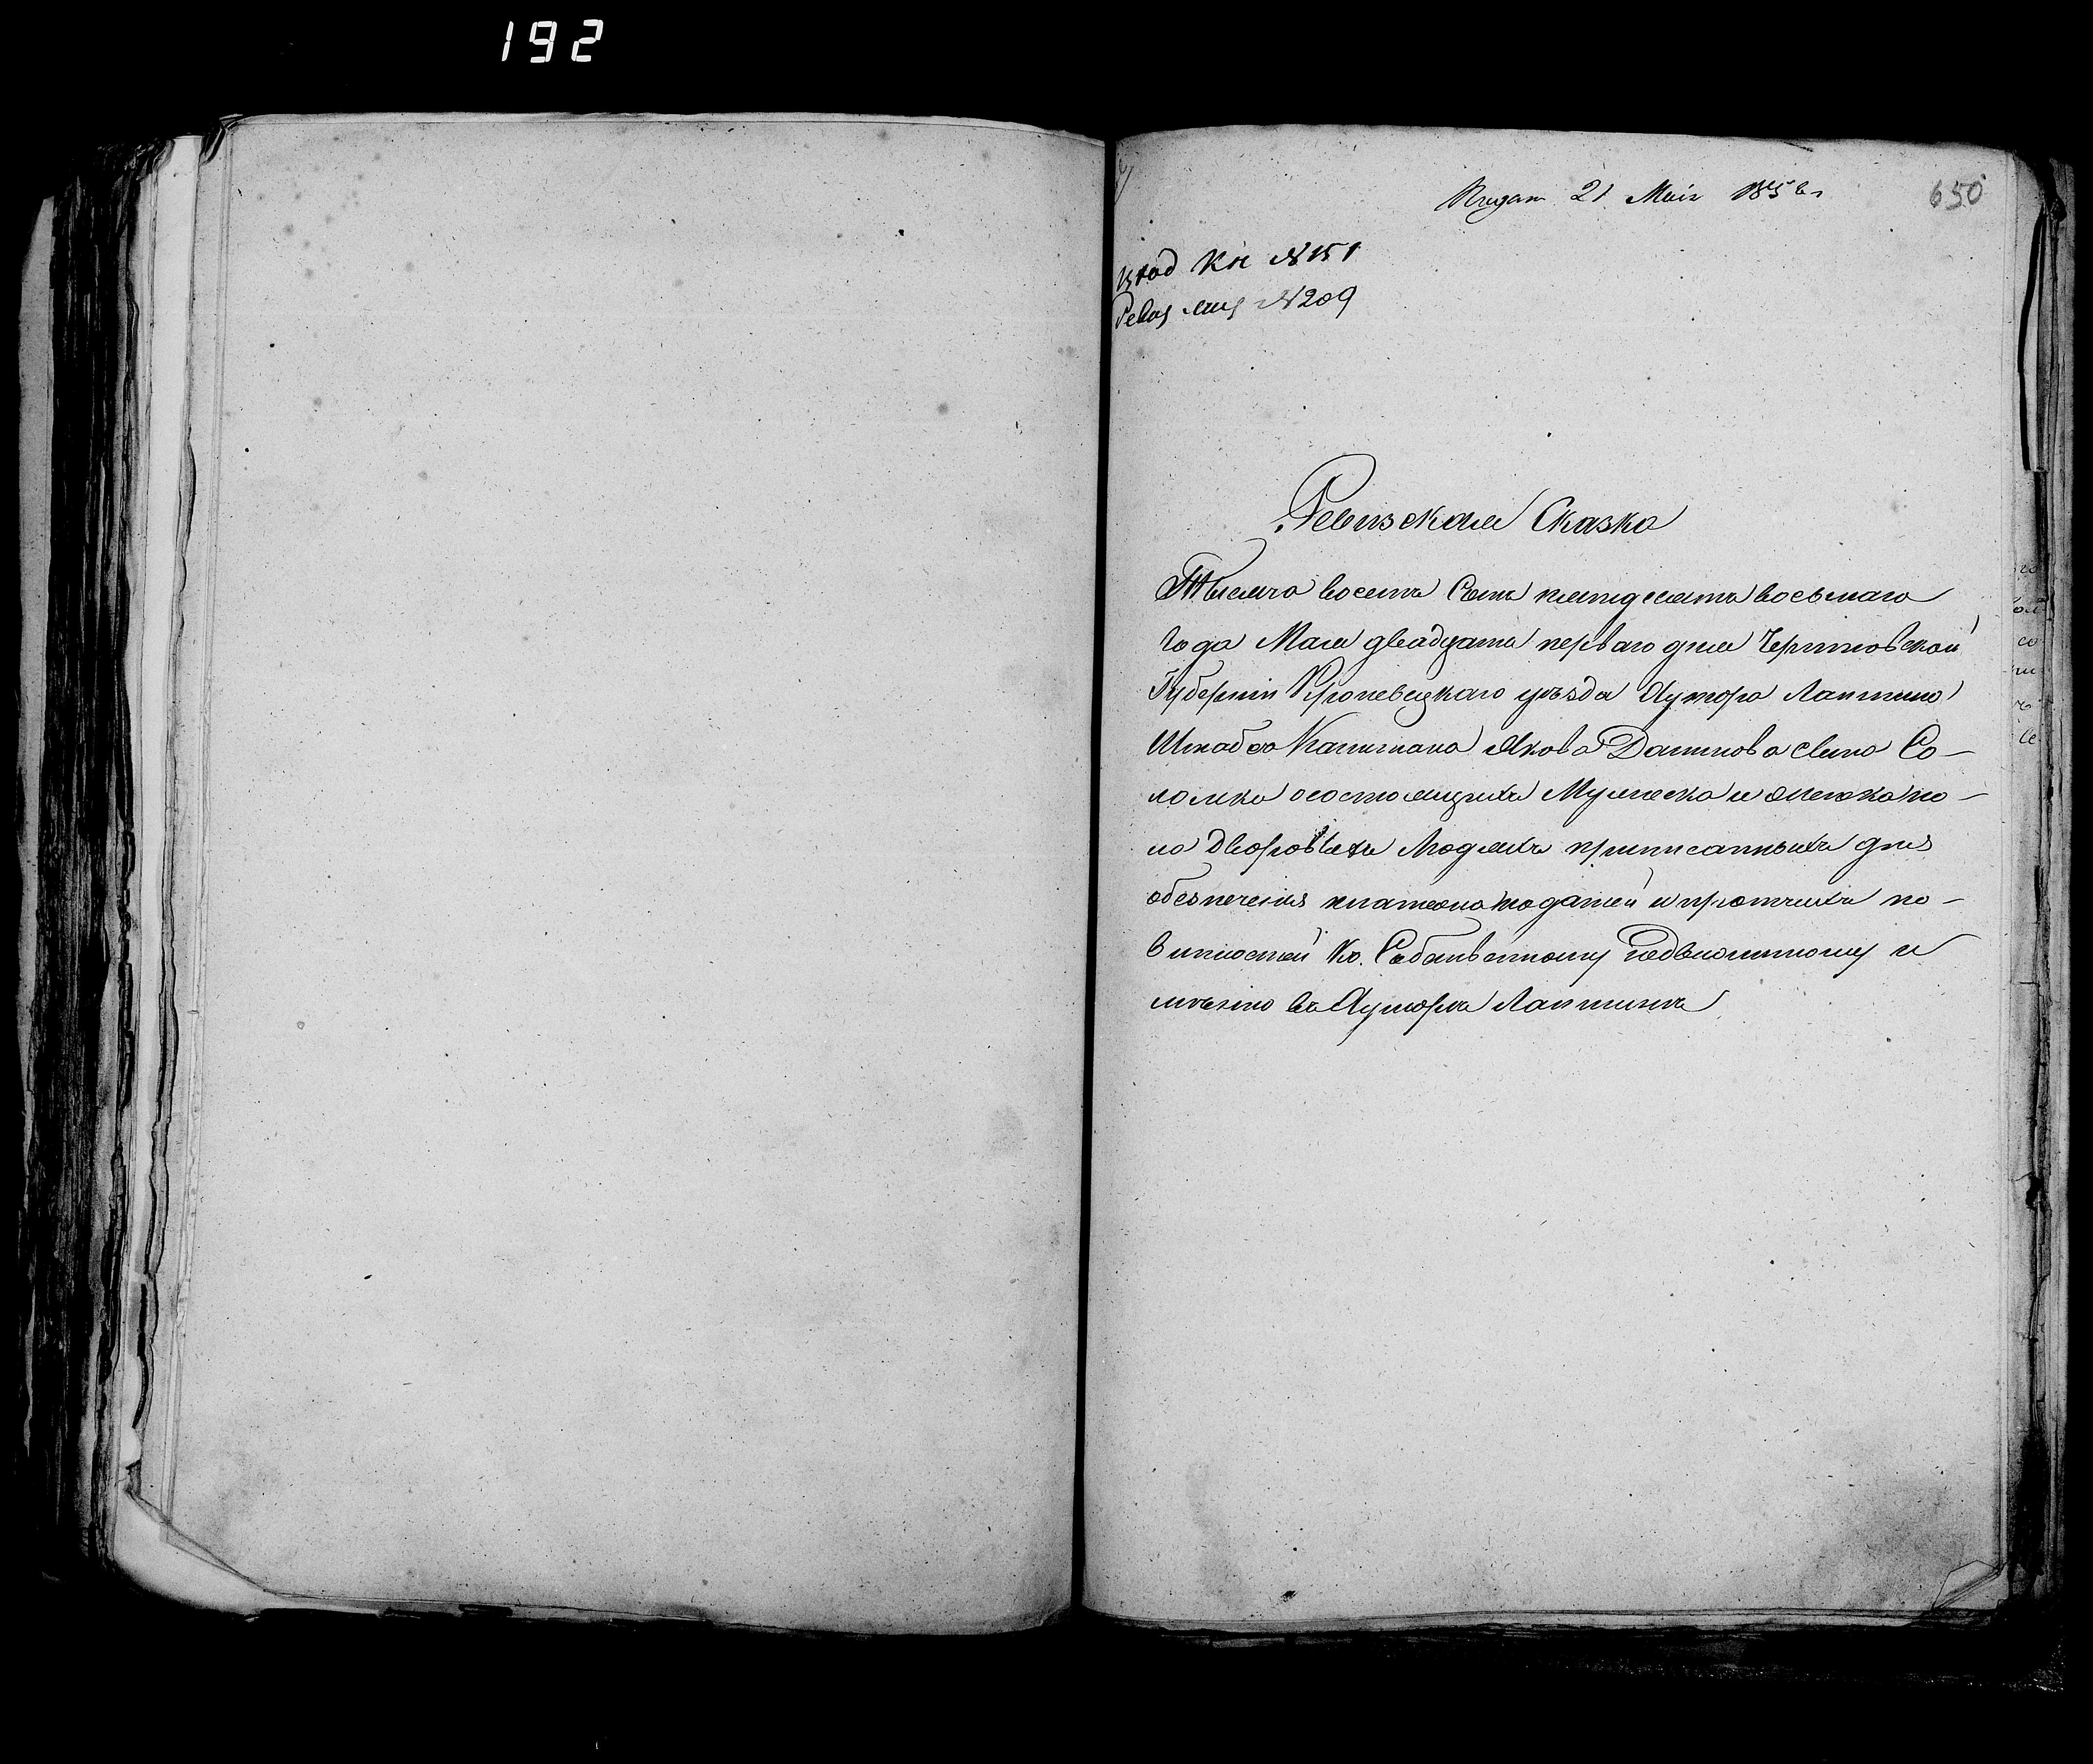 192
Подан 21 Маія 1858 г
650
Вход Кн №151
Ревиз лис №209
Ревизская Сказка
Тысяча восемъ Сотъ пятидесятъ восьмаго
года Мая двадцать перваго дня Черниговской
Губерніи Кролевецкаго уѣзда Хутора Лапшина
Штабсъ Капитана Якова Данилова сына Со-
ломка о состоящихъ Мужеска и женска по-
ла дворовыхъ Людяхъ приписанныхъ для
обезпеченія платежа податей и протчихъ по-
винностей Ко. Собственному недвижимому и
мѣнію въ Хуторѣ Лапшинѣ